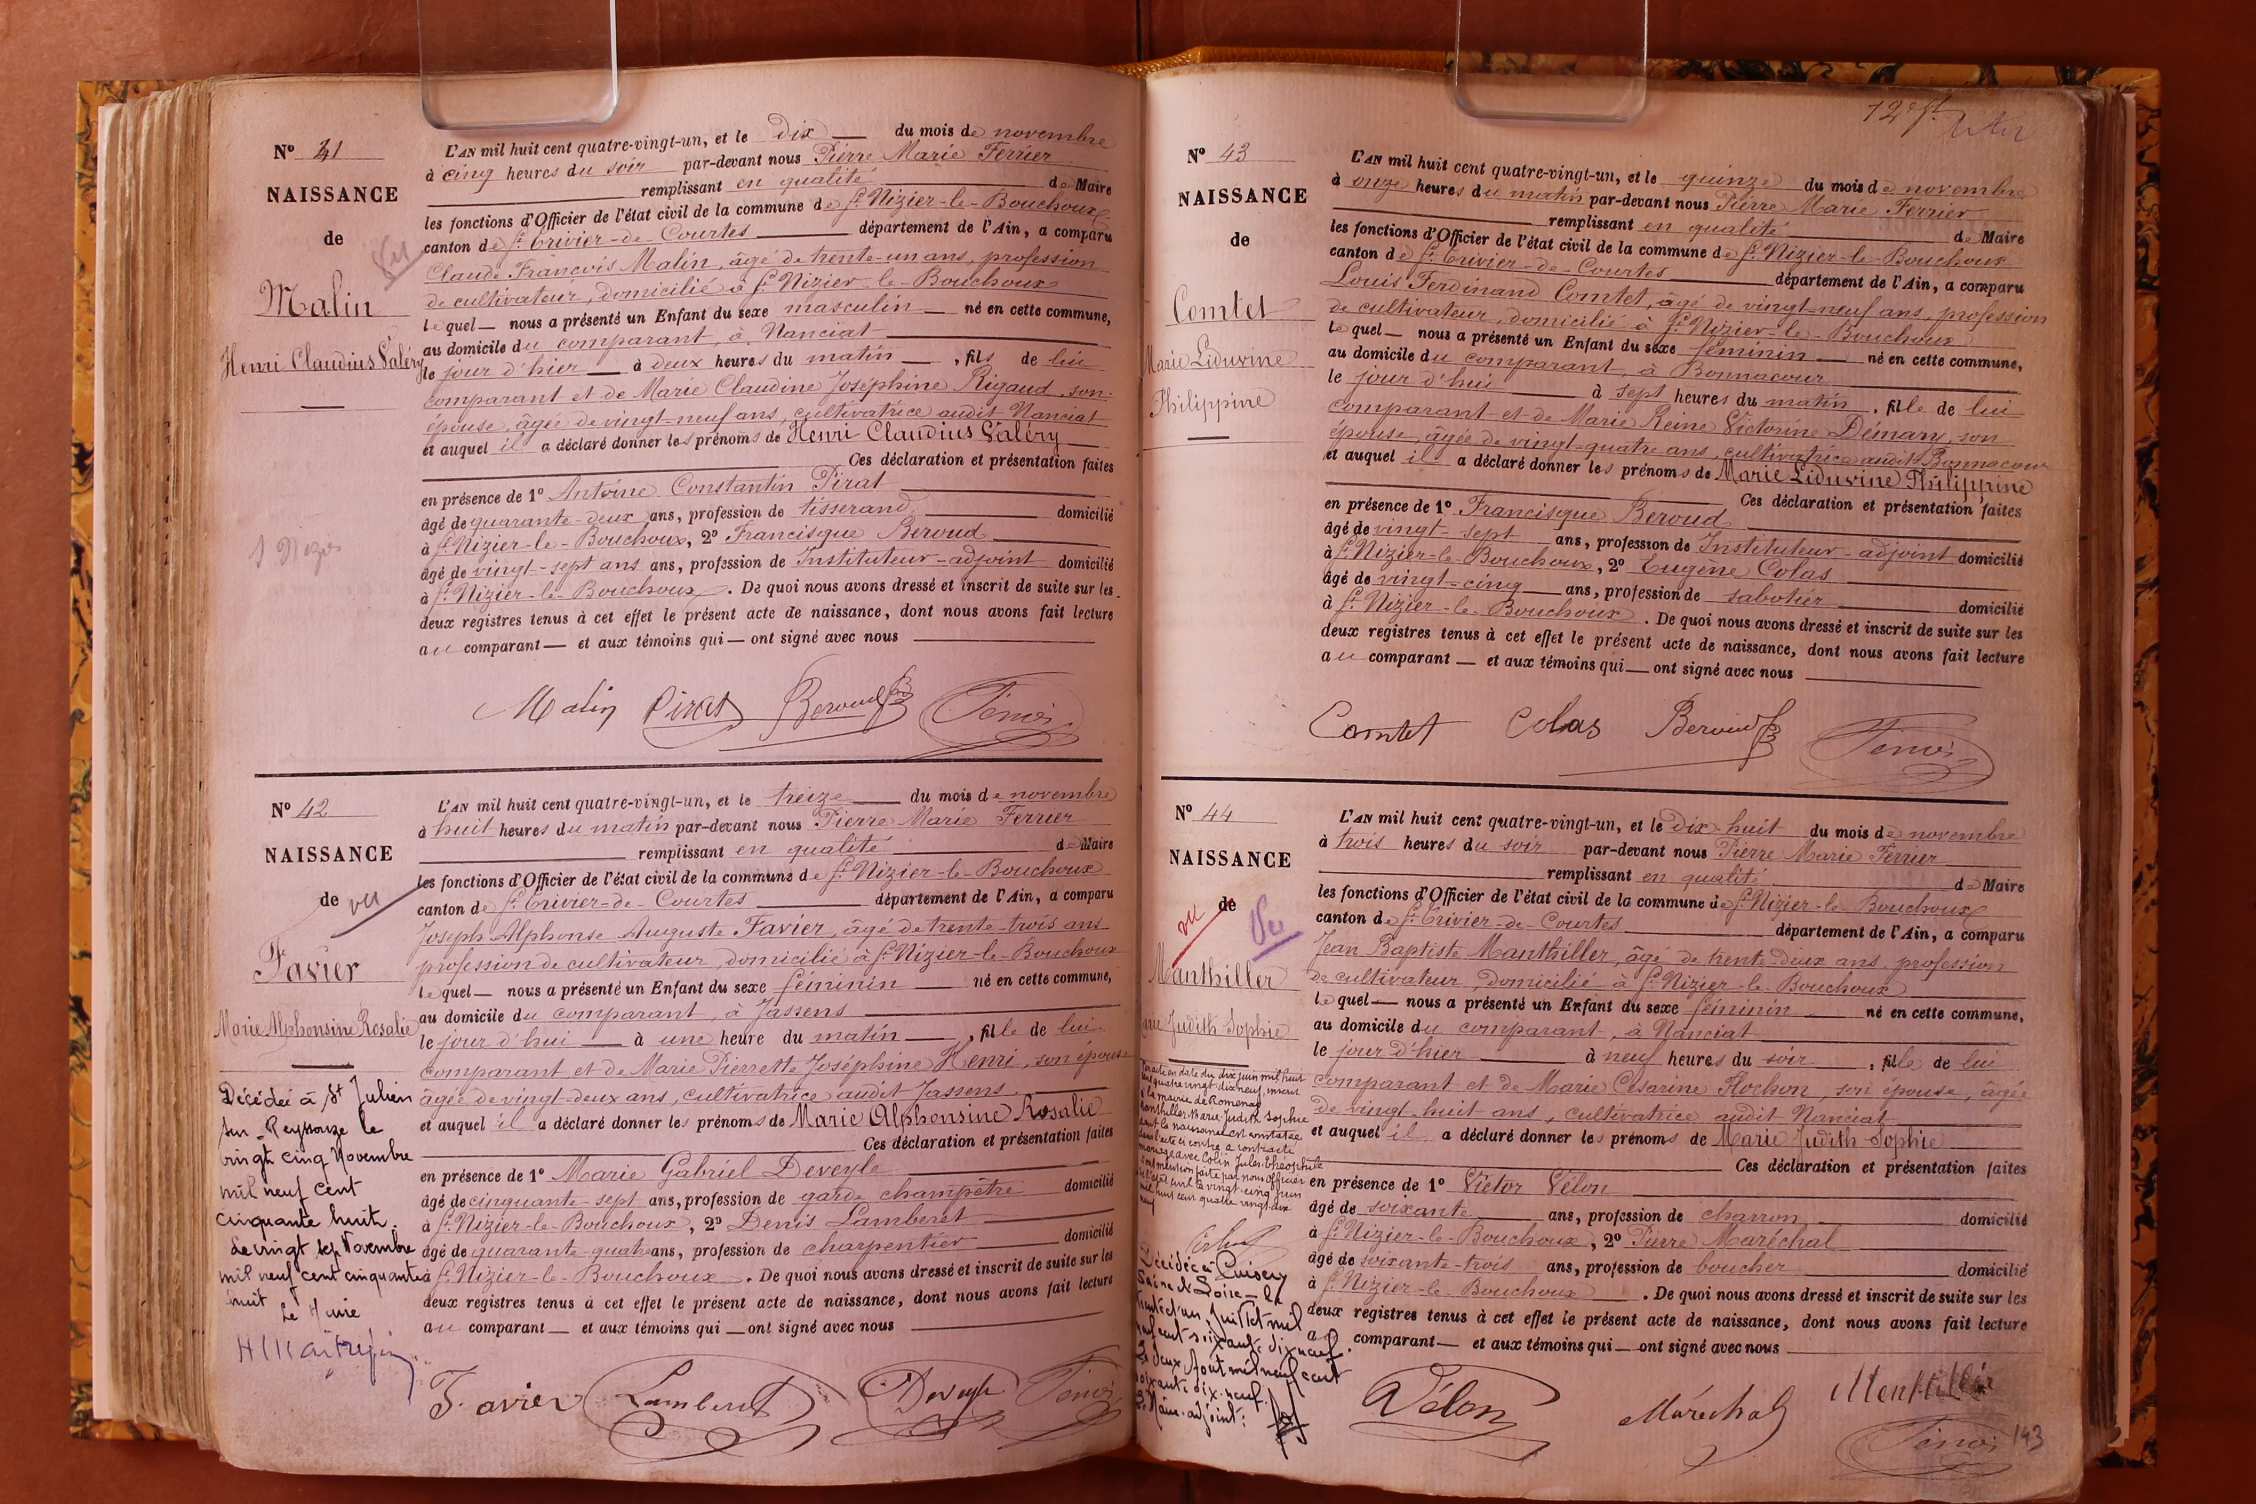 N° 41
NAISSANCE
de
Vu
Malin
Henri Claudius Valéry
L'AN mil huit cent quatre-vingt-un, et le dix du mois de novembre
à cinq heures du soir par-devant nous Pierre Marie Ferrier
remplissant en qualité de Maire
les fonctions d'Officier de l'état civil de la commune de St Nizier-le-Bouchoux
canton de St Trivier-de-Courtes département de l'Ain, a comparu
Claude François Malin, âgé de trente-un ans, profession
de cultivateur, domicilié à St Nizier-le-Bouchoux
lequel nous a présenté un Enfant du sexe masculin né en cette commune,
au domicile du comparant, à Nanciat
le jour d'hier à deux heures du matin, fils de lui
comparant et de Marie Claudine Joséphine Rigaud, son
épouse, âgée de vingt-neuf ans, cultivatrice audit Nanciat
et auquel il a déclaré donner les prénoms de Henri Claudius Valéry
Ces déclaration et présentation faites
en présence de 1° Antoine Constantin Pirat
âgé de quarante-deux ans, profession de tisserand domicilié
à St Nizier-le-Bouchoux, 2° Francisque Beroud
âgé de vingt-sept ans ans, profession de Instituteur-adjoint domicilié
à St Nizier-le-Bouchoux. De quoi nous avons dressé et inscrit de suite sur les
deux registres tenus à cet effet le présent acte de naissance, dont nous avons fait lecture
au comparant et aux témoins qui ont signé avec nous
Malin Pirat Beroud
N° 42
NAISSANCE
de
vu
Favier
Marie Alphonsine Rosalie
Décédée à St Julien
sur-Reyssouze le
vingt cinq Novembre
mil neuf cent
cinquante huit.
Le vingt sept Novembre
mil neuf cent cinquante
huit
Le Maire
L'AN mil huit cent quatre-vingt-un, et le treize du mois de novembre
à huit heures du matin par-devant nous Pierre Marie Ferrier
remplissant en qualité de Maire
les fonctions d'Officier de l'état civil de la commune de St Nizier-le-Bouchoux
canton de St Trivier-de-Courtes département de l'Ain, a comparu
Joseph Alphonse Auguste Favier, âgé de trente-trois ans
profession de cultivateur, domicilié à St Nizier-le-Bouchoux
lequel nous a présenté un Enfant du sexe féminin né en cette commune,
au domicile du comparant, à Jassens
le jour d'hui à une heure du matin, fille de lui
comparant et de Marie Pierrette Joséphine Henri, son épouse
âgée de vingt-deux ans, cultivatrice audit Jassens
et auquel il a déclaré donner les prénoms de Marie Alphonsine Rosalie
Ces déclaration et présentation faites
en présence de 1° Marie Gabriel Deveyle
âgé de cinquante-sept ans, profession de garde champêtre domicilié
à St Nizier-le-Bouchoux, 2° Denis Lamberet
âgé de quarante-quatre ans, profession de charpentier domicilié
à St Nizier-le-Bouchoux. De quoi nous avons dressé et inscrit de suite sur les
deux registres tenus à cet effet le présent acte de naissance, dont nous avons fait lecture
au comparant et aux témoins qui ont signé avec nous
Favier Lamberet Deveyle
N° 43
NAISSANCE
de
Comtet
Marie Liduvine
Philippine
L'AN mil huit cent quatre-vingt-un, et le quinze du mois de novembre
à onze heures du matin par-devant nous Pierre Marie Ferrier
remplissant en qualité de Maire
les fonctions d'Officier de l'état civil de la commune de St Nizier-le-Bouchoux
canton de St Trivier-de-Courtes département de l'Ain, a comparu
Louis Ferdinand Comtet, âgé de vingt-neuf ans, profession
de cultivateur, domicilié à St Nizier-le-Bouchoux
lequel nous a présenté un Enfant du sexe féminin né en cette commune,
au domicile du comparant, à Bonnacour
le jour d'hui à sept heures du matin, fille de lui
comparant et de Marie Reine Victorine Démary, son
épouse, âgée de vingt-quatre ans, cultivatrice audit Bonnacour
et auquel il a déclaré donner les prénoms de Marie Liduvine Philippine
Ces déclaration et présentation faites
en présence de 1° Francisque Beroud
âgé de vingt-sept ans, profession de Instituteur-adjoint domicilié
à St Nizier-le-Bouchoux, 2° Eugène Colas
âgé de vingt-cinq ans, profession de sabotier domicilié
à St Nizier-le-Bouchoux. De quoi nous avons dressé et inscrit de suite sur les
deux registres tenus à cet effet le présent acte de naissance, dont nous avons fait lecture
au comparant et aux témoins qui ont signé avec nous
Comtet Colas Beroud
N° 44
NAISSANCE
de
vu
Vu
Manthiller
Marie Judith Sophie
Par acte en date du dix juin mil huit
cent quatre vingt dix neuf, inscrit
à la mairie de Romenay
Manthiller Marie Judith Sophie
dont la naissance est constatée
dans l'acte ci contre a contracté
mariage avec Colin Jules Théophile
Décédée à Cuisery
Saône & Loire le
trente et un Juillet mil
neuf cent soixante dix neuf.
Le deux Août mil neuf cent
soixante dix-neuf.
Le Maire-adjoint:
L'AN mil huit cent quatre-vingt-un, et le dix-huit du mois de novembre
à trois heures du soir par-devant nous Pierre Marie Ferrier
remplissant en qualité de Maire
les fonctions d'Officier de l'état civil de la commune de St Nizier-le-Bouchoux
canton de St Trivier-de-Courtes département de l'Ain, a comparu
Jean Baptiste Manthiller, âgé de trente-deux ans, profession
de cultivateur, domicilié à St Nizier-le-Bouchoux
lequel nous a présenté un Enfant du sexe féminin né en cette commune,
au domicile du comparant, à Nanciat
le jour d'hier à neuf heures du soir, fille de lui
comparant et de Marie Césarine Flochon, son épouse, âgée
de vingt-huit ans, cultivatrice audit Nanciat
et auquel il a déclaré donner les prénoms de Marie Judith Sophie
Ces déclaration et présentation faites
en présence de 1° Victor Vélon
âgé de soixante ans, profession de charron domicilié
à St Nizier-le-Bouchoux, 2° Pierre Maréchal
âgé de soixante-trois ans, profession de boucher domicilié
à St Nizier-le-Bouchoux. De quoi nous avons dressé et inscrit de suite sur les
deux registres tenus à cet effet le présent acte de naissance, dont nous avons fait lecture
au comparant et aux témoins qui ont signé avec nous
Vélon Maréchal
143